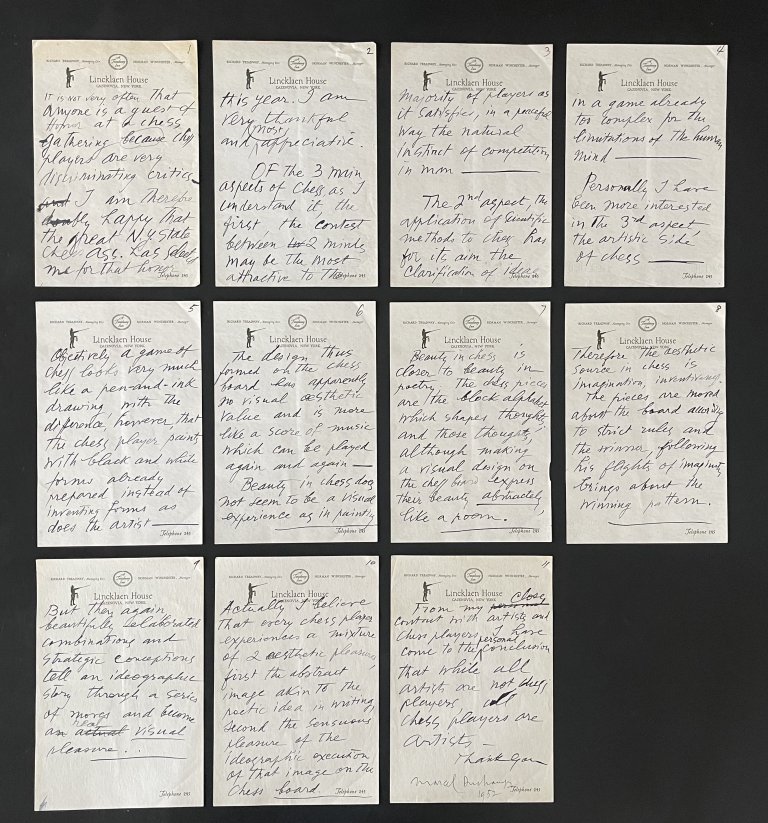 1
RICHARD TREADWAY, Managing Dir.
NORMAN WINCHESTER, Manager
Lincklaen House
CAZENOVIA, NEW YORK
It is not very often that
anyone is a guest of
Honor at a chess
gathering because chess
players are very
discriminating critics
and I am therefore
doubly happy that
the great N.Y. State
Chess Ass. has selected
me for that honor
2
RICHARD TREADWAY, Managing Dir.
NORMAN WINCHESTER, Manager
Lincklaen House
CAZENOVIA, NEW YORK
this year. I am
very thankful
most
and appreciative.
Of the 3 main
aspects of Chess, as I
understand it, the
first, the contest
between 2 minds,
may be the most
attractive to the
Telephone 245
3
RICHARD TREADWAY, Managing Dir.
NORMAN WINCHESTER, Manager
Lincklaen House
CAZENOVIA, NEW YORK
majority of players as
it satisfies, in a peaceful
way the natural
instinct of competition
in man
The 2nd aspect, the
application of scientific
methods to chess has
for its aim the
Clarification of ideas
Telephone 245
4
RICHARD TREADWAY, Managing Dir.
NORMAN WINCHESTER, Manager
Lincklaen House
CAZENOVIA, NEW YORK
in a game already
too complex for the
limitations of the human
mind
Personally I have
been more interested
in the 3rd aspect,
the artistic side
of chess
Telephone 245
5
RICHARD TREADWAY, Managing Dir.
NORMAN WINCHESTER, Manager
Lincklaen House
CAZENOVIA, NEW YORK
Objectively a game of
chess looks very much
like a pen-and-ink
drawing with the
difference, however, that
the chess player paints
with black and white
forms already
prepared instead of
inventing forms as
does the artist
Telephone 245
6
RICHARD TREADWAY, Managing Dir.
NORMAN WINCHESTER, Manager
Lincklaen House
CAZENOVIA, NEW YORK
The design thus
formed on the chess
board has apparently
no visual aesthetic
value and is more
like a score of music
which can be played
again and again —
Beauty in chess does
not seem to be a visual
experience as in painting
Telephone 245
7
RICHARD TREADWAY, Managing Dir.
NORMAN WINCHESTER, Manager
Lincklaen House
CAZENOVIA, NEW YORK
Beauty in chess is
closer to beauty in
poetry. The chess pieces
are the block alphabet
which shapes thoughts
and those thoughts,
although making
a visual design on
the chess board express
their beauty abstractely,
like a poem.
Telephone 245
8
RICHARD TREADWAY, Managing Dir.
NORMAN WINCHESTER, Manager
Lincklaen House
CAZENOVIA, NEW YORK
Therefore the aesthetic
source in chess is
imagination, inventivness.
The pieces are moved
about the board according
to strict rules and
the winner, following
his flights of imagination
brings about the
winning pattern.
Telephone 245
9
RICHARD TREADWAY, Managing Dir.
NORMAN WINCHESTER, Manager
Lincklaen House
CAZENOVIA, NEW YORK
But then again
beautifully elaborated
combinations and
strategic conceptions
tell an ideographic
story through a series
of moves and become
real
an actual visual
pleasure . .
Telephone 245
10
RICHARD TREADWAY, Managing Dir.
NORMAN WINCHESTER, Manager
Lincklaen House
CAZENOVIA, NEW YORK
Actually I believe
that every chess player
experiences a mixture
of 2 aesthetic pleasures,
first the abstract
image akin to the
poetic idea in writing,
second the sensuous
pleasure of the
ideographic execution
of that image on the
Chess board.
Telephone 245
11
RICHARD TREADWAY, Managing Dir.
NORMAN WINCHESTER, Manager
Lincklaen House
CAZENOVIA, NEW YORK
close
From my personal
contact with artists and
chess players I have
personal
come to the conclusion
that while all
artists are not chess
players, all
chess players are
Artists —
Thank you
Marcel Duchamp
1952
Telephone 245